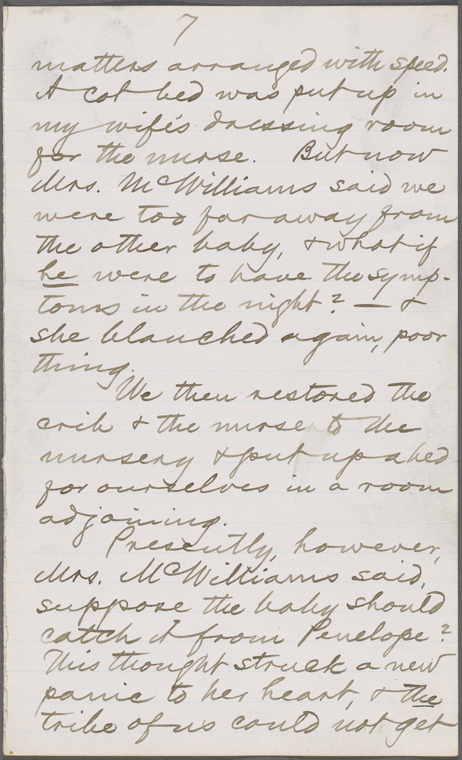 7
matters arranged with speed.
A cot bed was put up in
my wife's dressing room
for the nurse. But now
Mrs. McWilliams said we
were too far away from
the other baby, & what if
he were to have the symp-
toms in the night? — &
she blanched again, poor
thing.
We then restored the
crib & the nurse to the
nursery & put up a bed
for ourselves in a room
adjoining.
Presently, however,
Mrs. McWilliams said,
suppose the baby should
catch it from Penelope?
This thought struck a new
panic to her heart, & the
tribe of us could not get